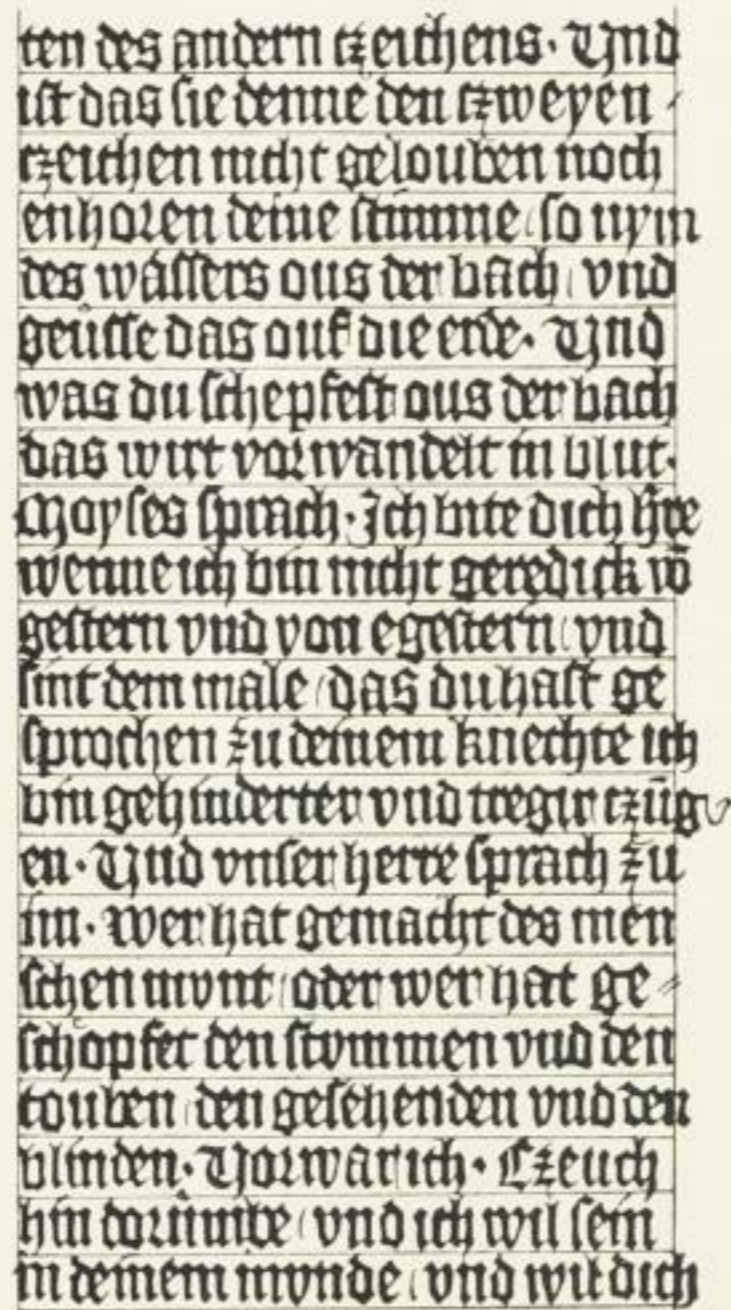 ten des andern tzeichens· Vnd
ist das sie denne den tzweyen
tzeichen nicht gelouben noch
enhoren deine stimme / so nym
des wassers ous der bach / vnd
geusse das ouf die erde· Vnd
was du schepfest ous der bach
das wirt vorwandelt in blut·
Moyses sprach· Ich bite dich h̄re
wenne ich bin nicht geredick vō
gestern vnd von egestern / vnd
sint dem male / das du hast ge
sprochen zu deinem knechte ich
bin gehinderter vnd tregir tzūg
en· Vnd vnser herre sprach zu
im· Wer hat gemacht des men
schen mvnt / oder wer hat ge⸗
schopfet den stvmmen vnd den
touben / den gesehenden vnd den
blinden· Vorwar ich· Czeuch
hin dorumbe / vnd ich wil sein
in deinem mvnde / vnd wil dich